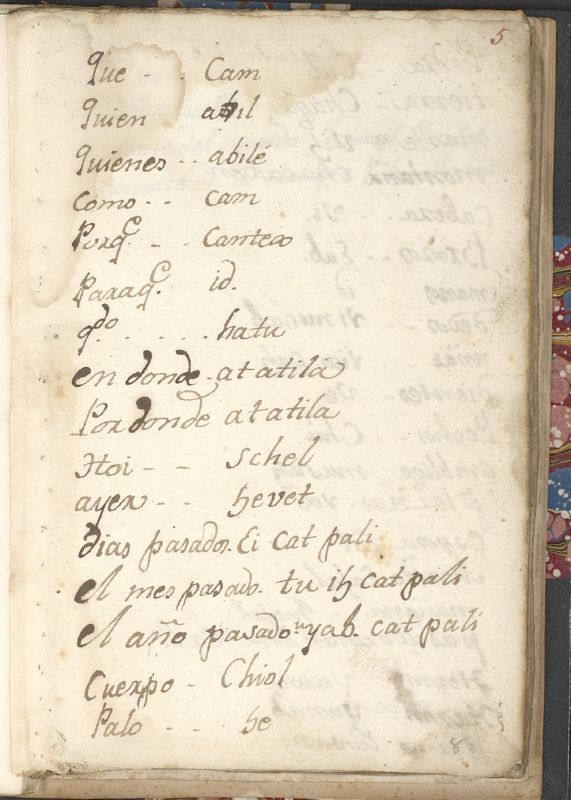 5
Que - - Cam
Quien abil
Quienes - - abilé
Como - - cam
Porq.e - - Canteo
Paraq.e id.
q.do . . . . . . hatu
en donde - atatila
Por donde atatila
Hoi - - Schel
ayer - - hevet
dias pasados. Ei cat pali
el mes pasado. tu ih cat pali
el año pasado. yab. cat pali
Cuerpo - Chiol
Palo - - he